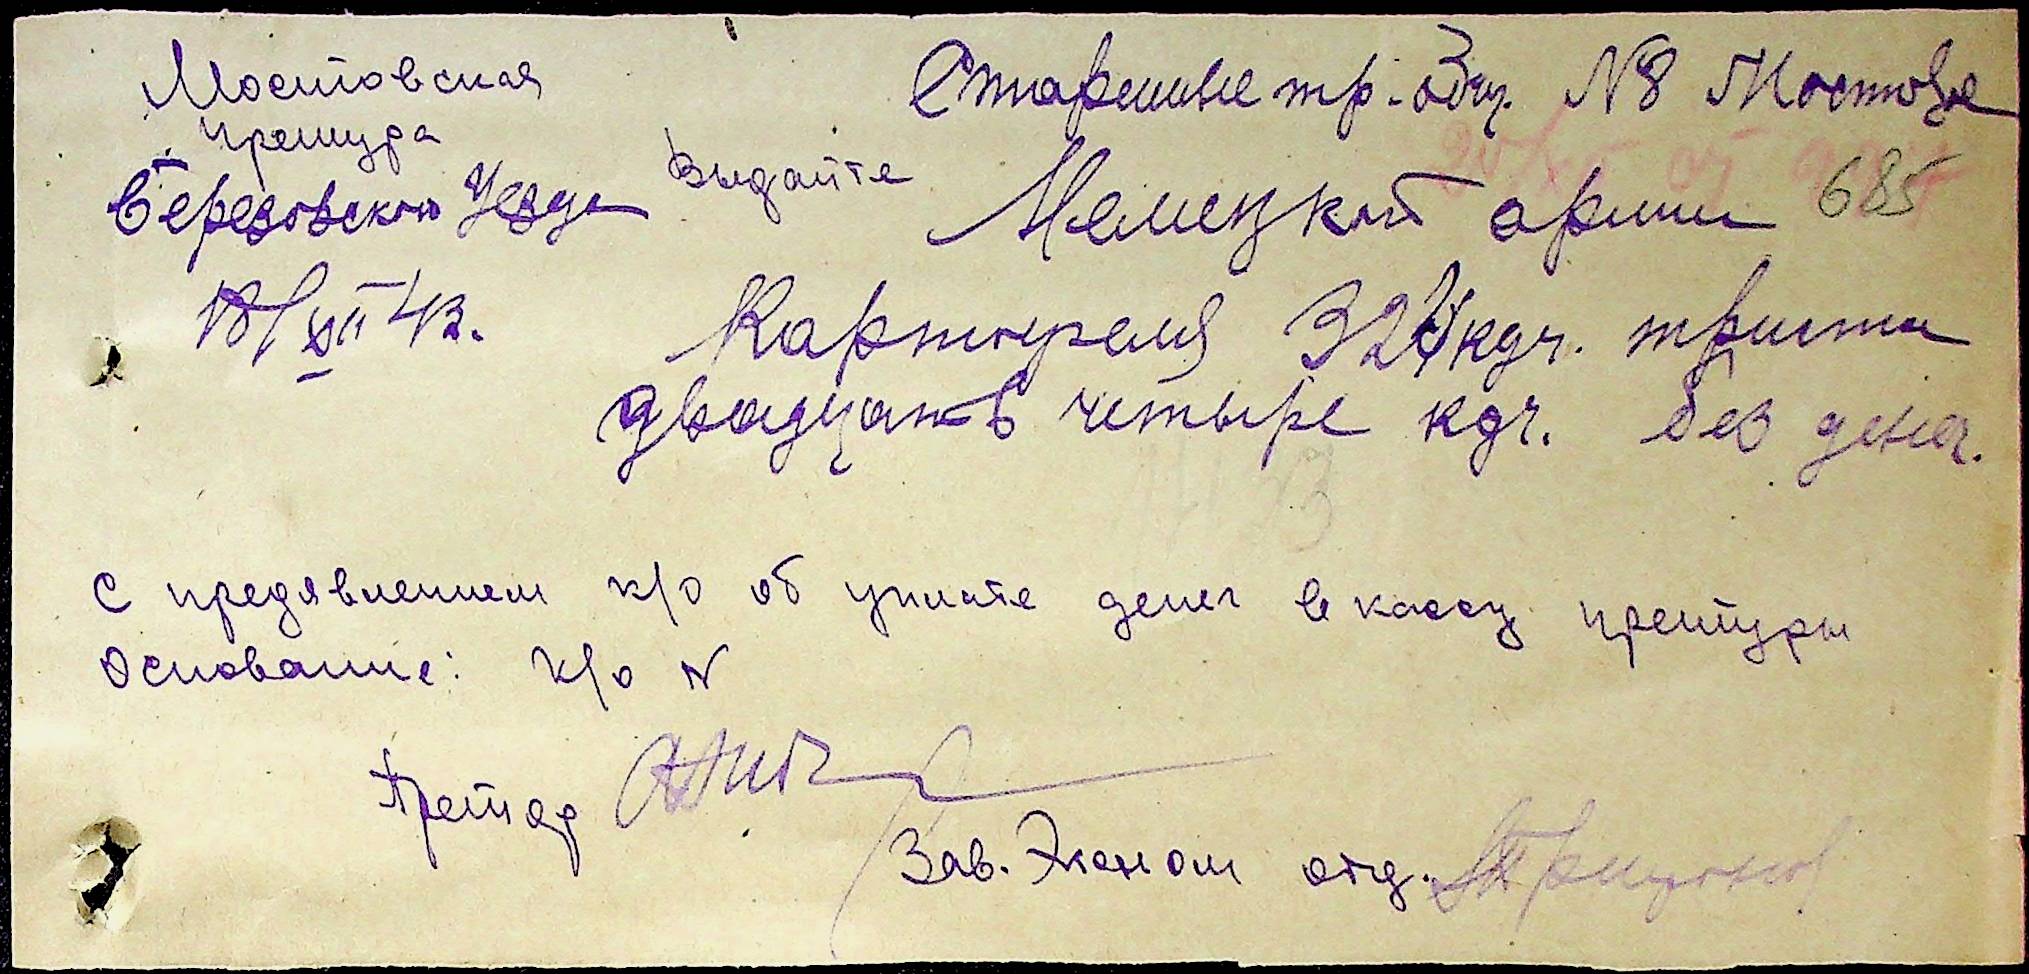 Мостовская
претура
Березовского Уезда
18/XII 43.
Старшине тр. Общ. N8 Мостовое
Выдайте Немецкой армии 685
Картофеля 324 кгр. триста
двадцать четыре кгр. без денег.
С предявлением к/о об уплате денег в кассу претуры
Основание: к/о N
Претор
Зав. Эконом отд.